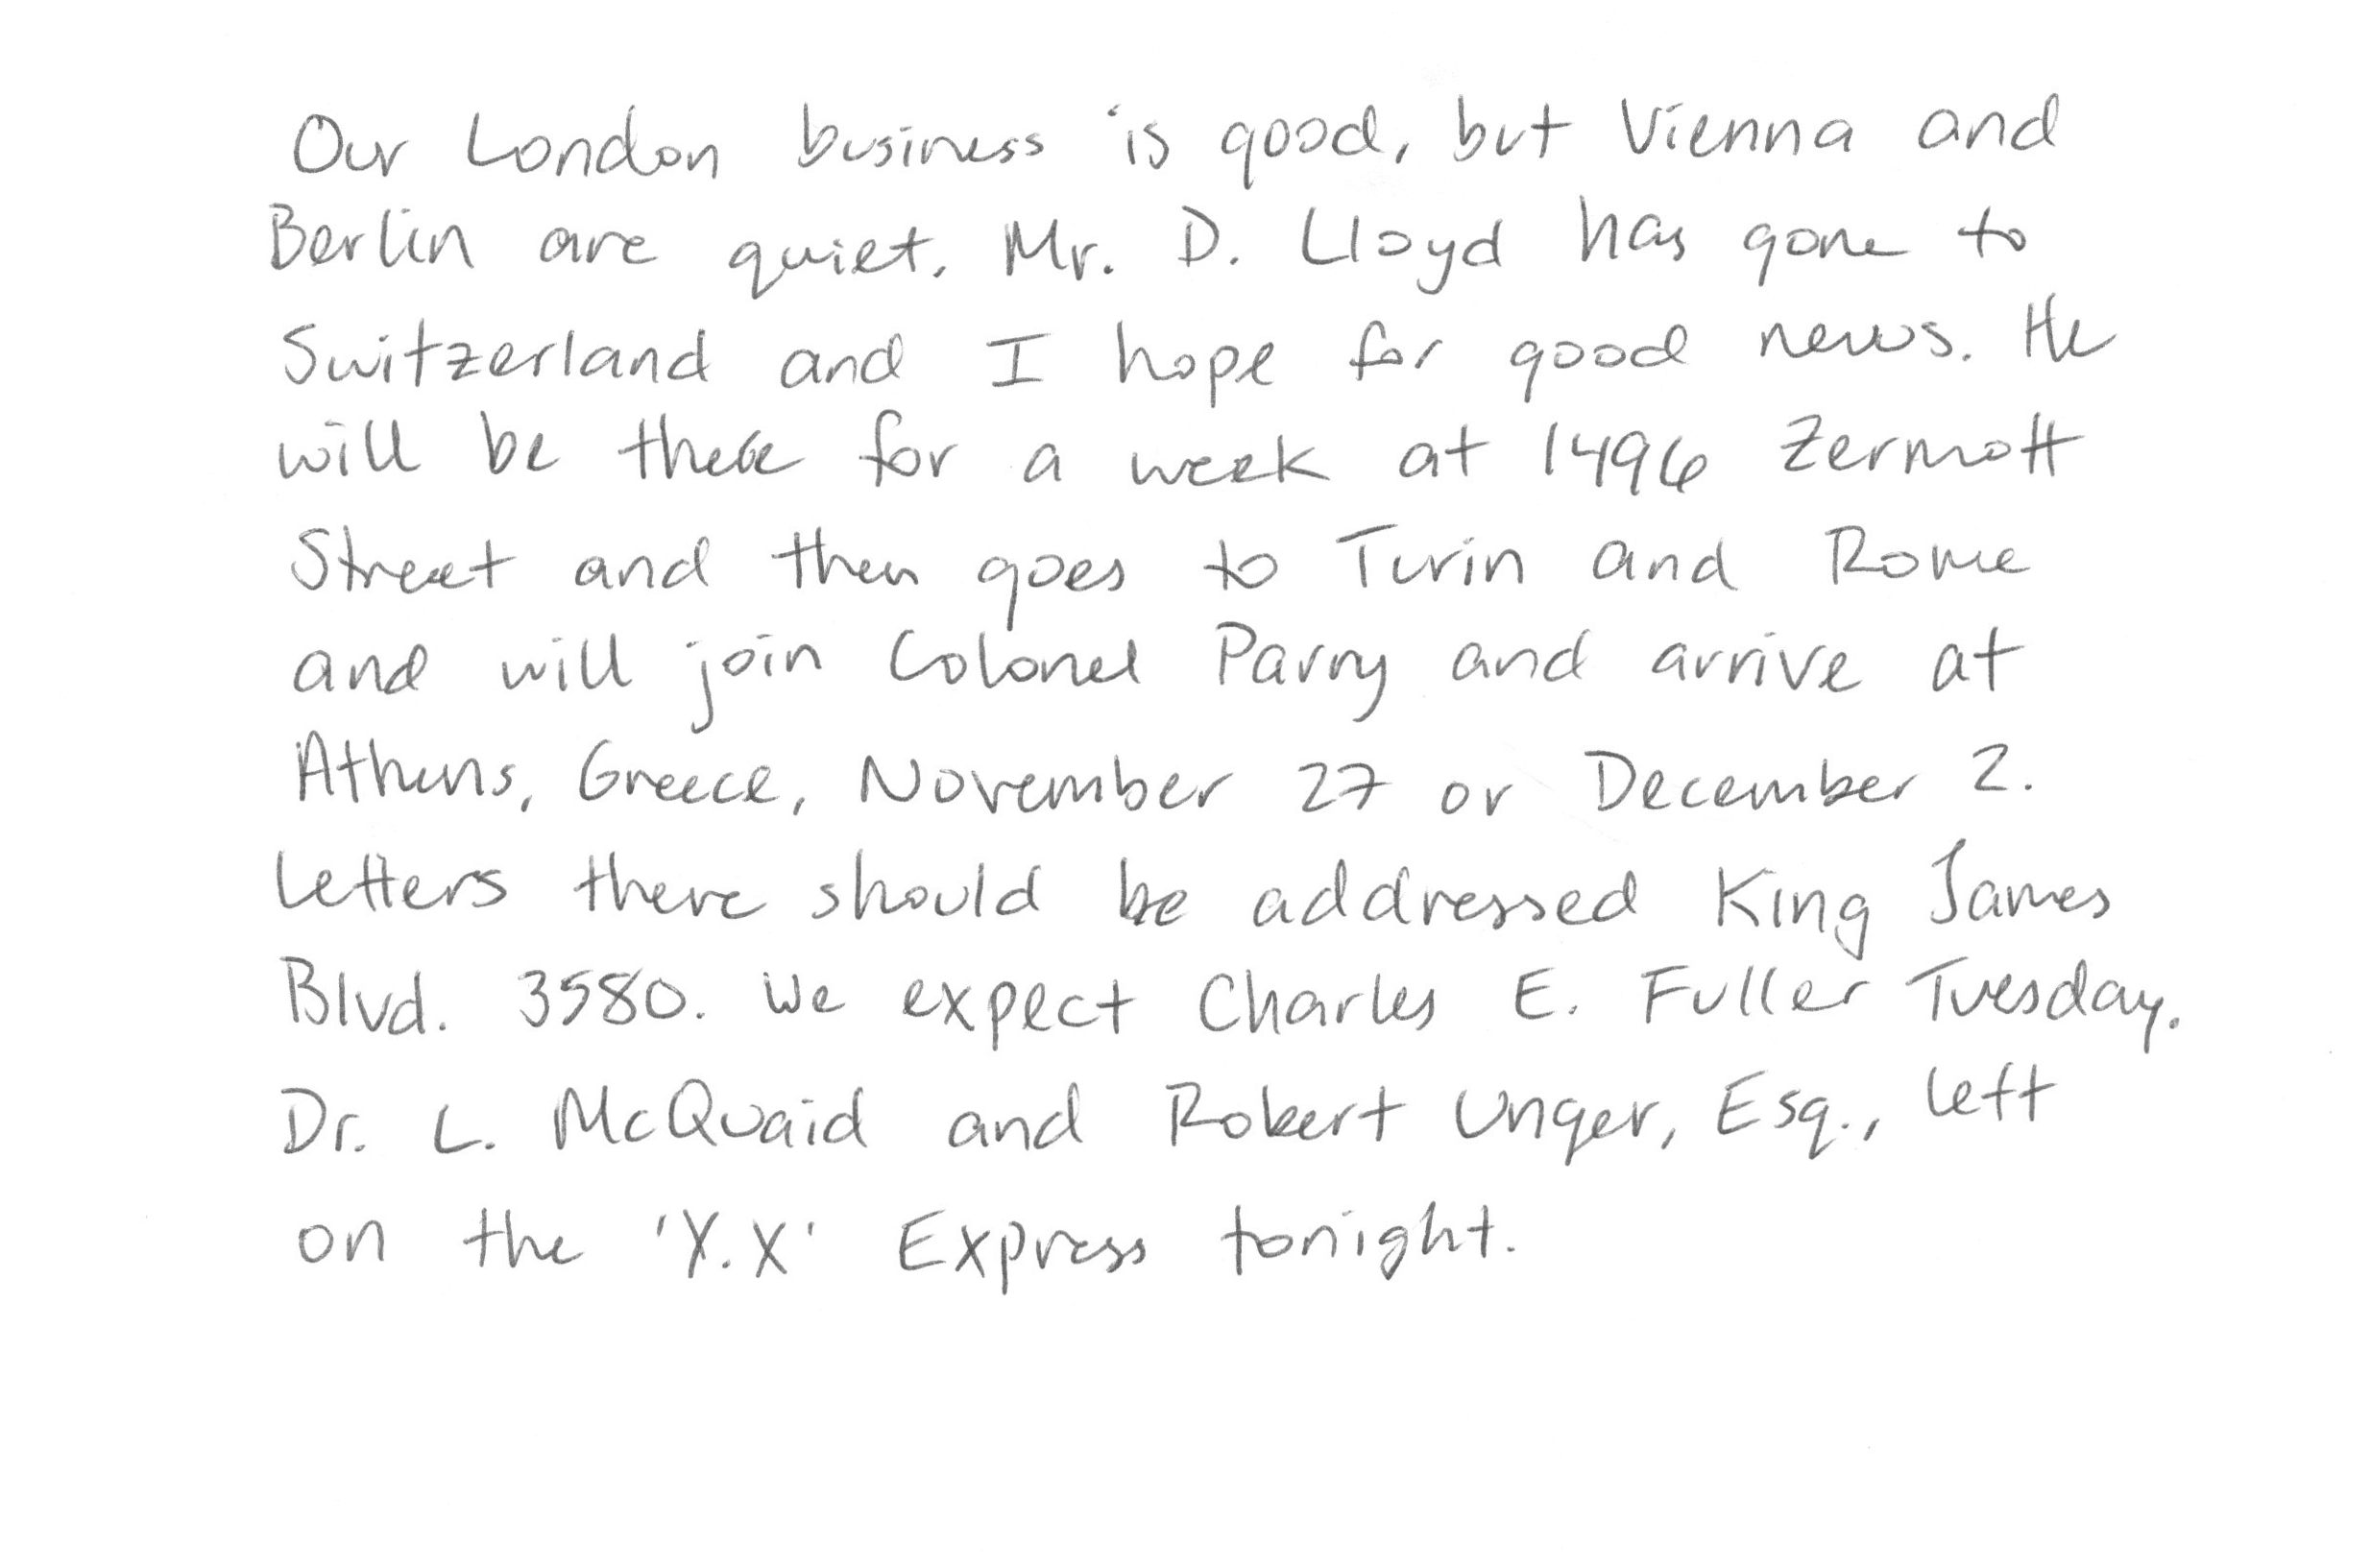 Our London business is good, but Vienna and
Berlin are quiet. Mr. D. Lloyd has gone to
Switzerland and I hope for good news. He
will be there for a week at 1496 Zermott
Street and then goes to Turin and Rome
and will join Colonel Parry and arrive at
Athens, Greece, November 27 or December 2.
Letters there should be addressed King James
Blvd. 3580. We expect Charles E. Fuller Tuesday.
Dr. L. McQuaid and Robert Unger, Esq., left
on the 'Y.X' Express tonight.